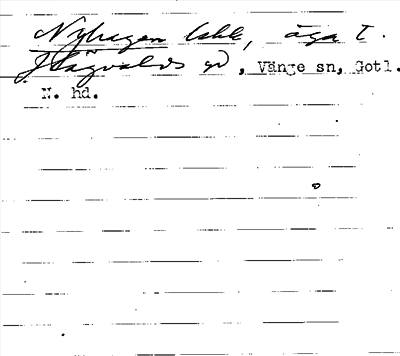 Nyhagen lshl, äga t.
Hägvalds gd, Vänge sn, Gotl.
N. hd.